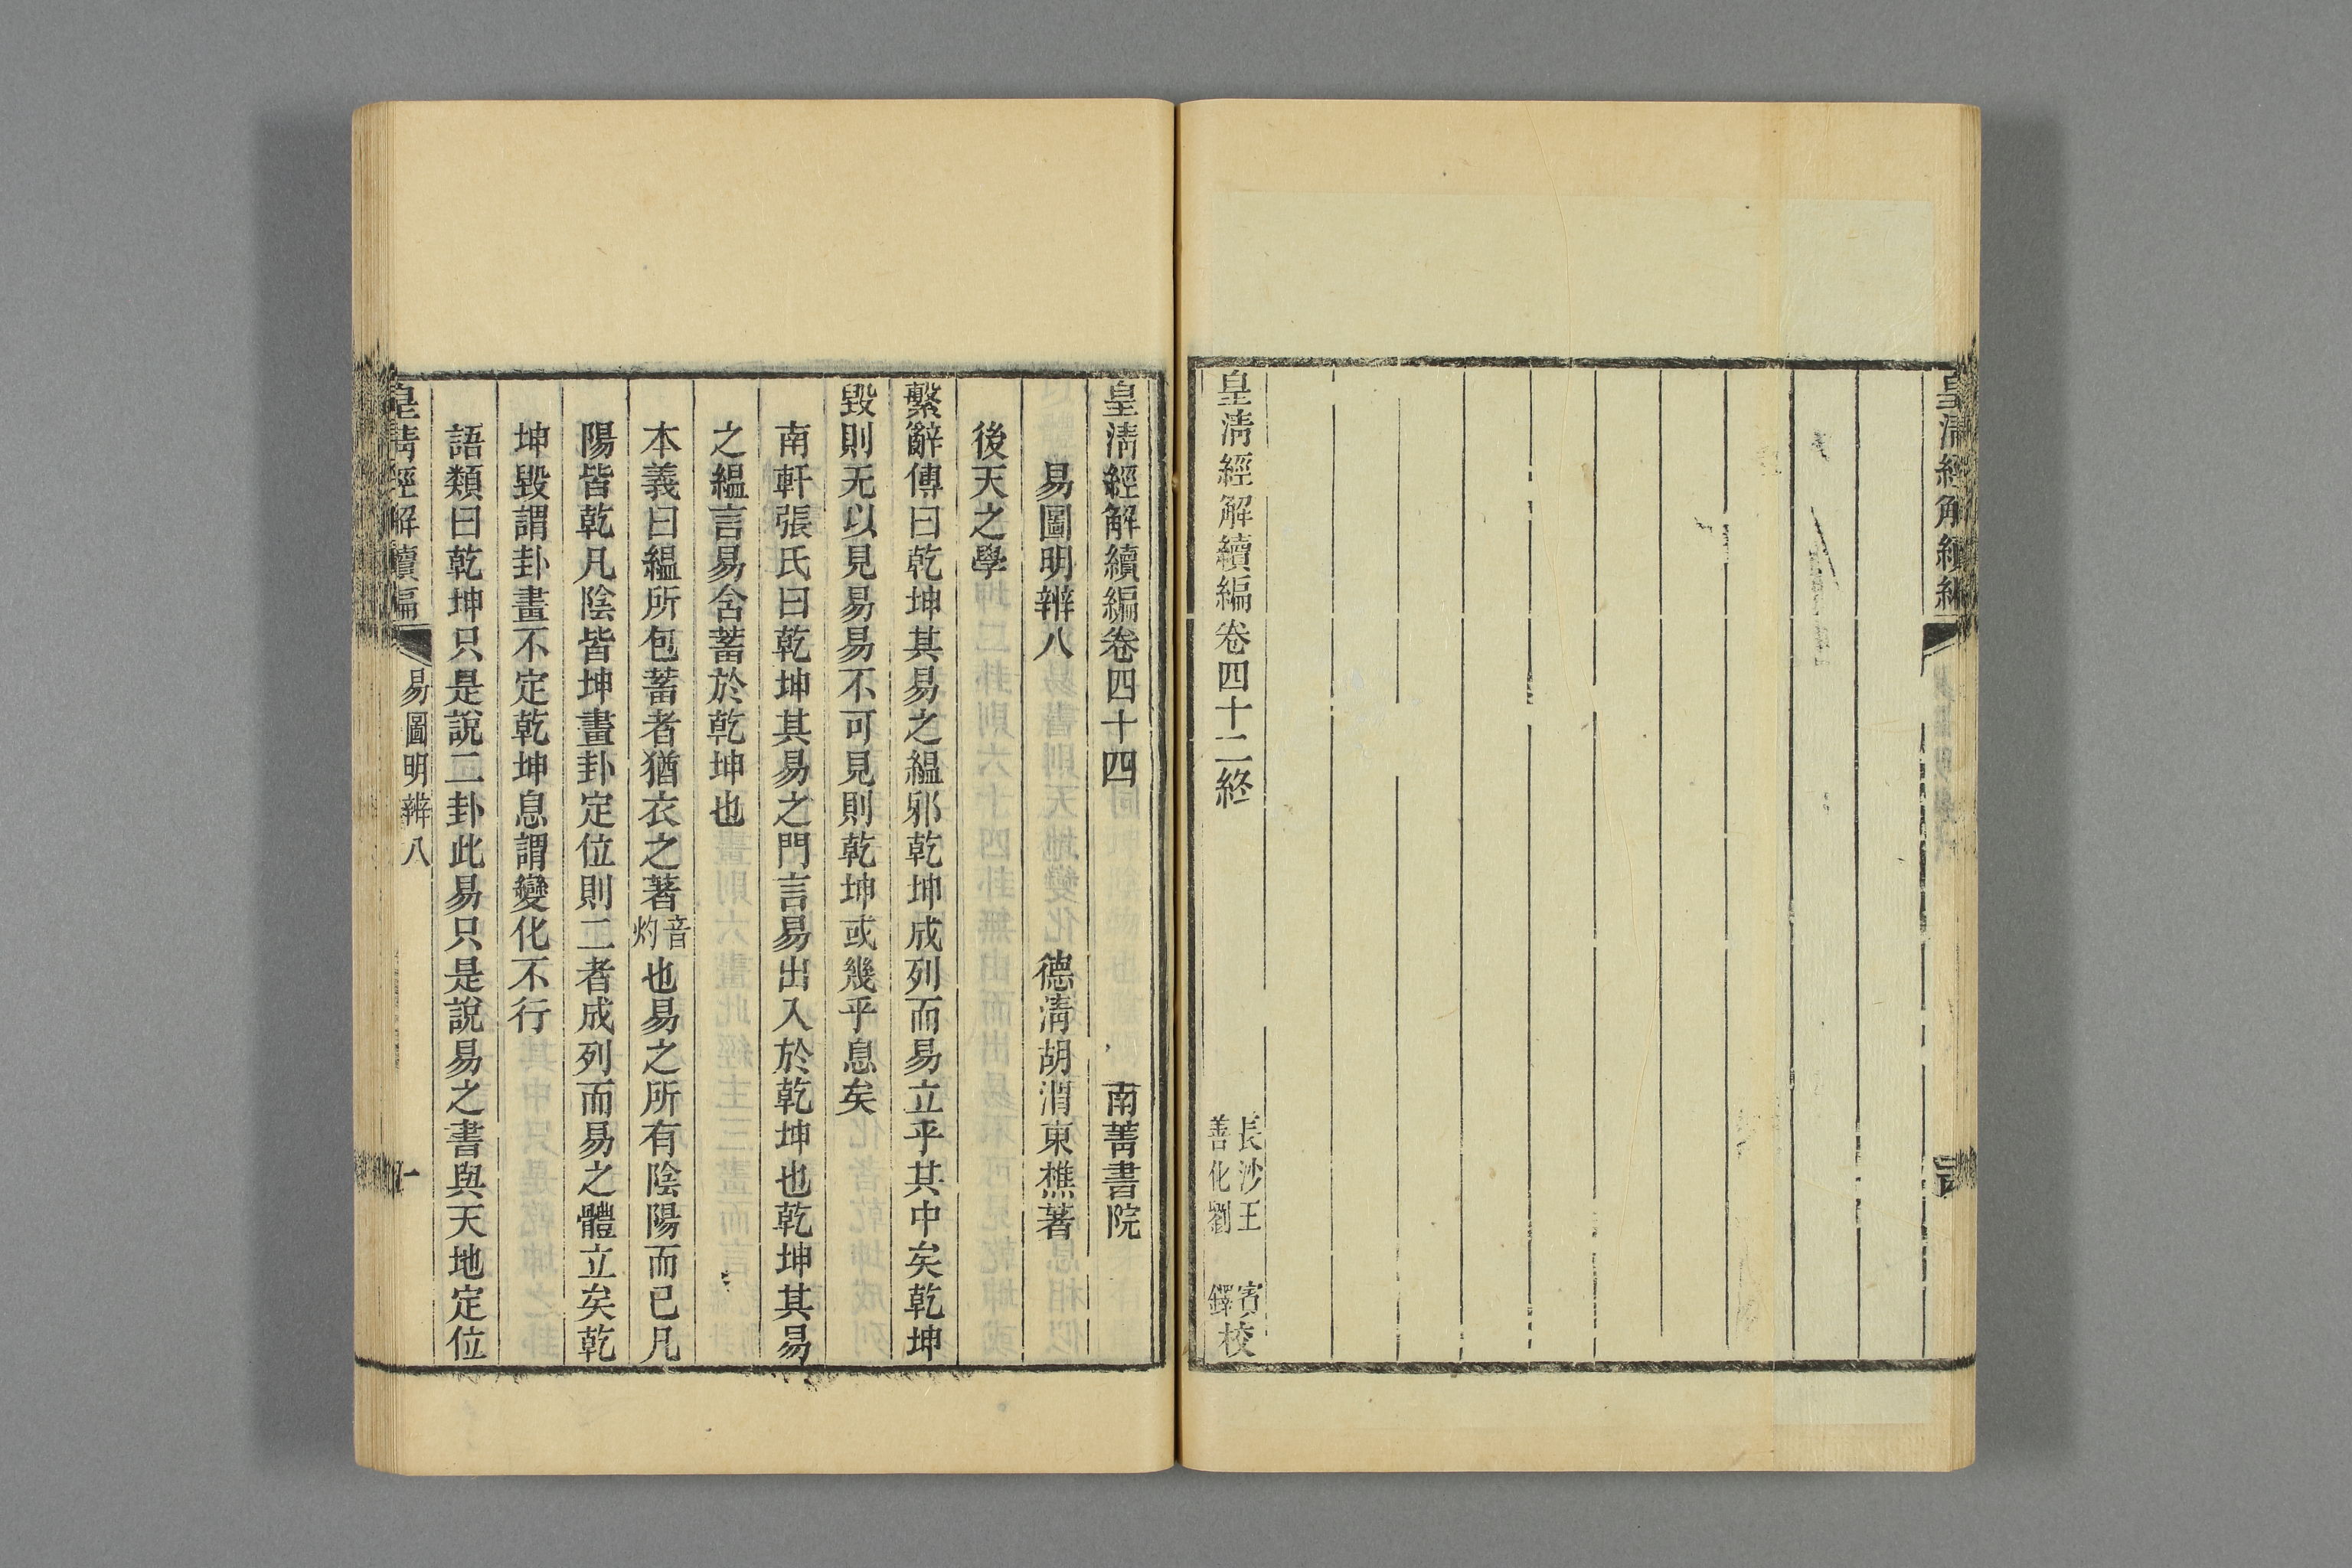 皇清經解續編
皇清經解續編卷四十二終
長沙王
善化劉
鐸校
皇清經解續編卷四十四 南菁書院
易圖明辨八 德清胡渭東樵著
後天之學
繫辭傳曰乾坤其易之縕邪乾坤成列而易立乎其中矣乾坤
毀則无以見易易不可見則乾坤或幾乎息矣
南軒張氏曰乾坤其易之門言易出入於乾坤也乾坤其易
之縕言易含蓄於乾坤也
本義曰縕所包蓄者猶衣之著音灼也易之所有陰陽而已凡
陽皆乾凡陰皆坤畫卦定位則二者成列而易之體立矣乾
坤毀謂卦畫不定乾坤息謂變化不行
語類曰乾坤只是說二卦此易只是說易之書與天地定位
皇清經解續編 易圖明辨八 一